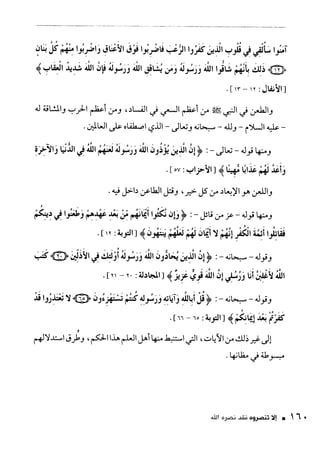 آمَنُوا سَأُلْقِي فِي قُلُوبِ الَّذِينَ كَفَرُوا الرُّعْبَ فَاضْرِبُوا فَوْقَ الأَعْنَاقِ وَاضْرِبُوا مِنْهُمْ كُلَّ بَنَانٍ
﴿١٢﴾ ذَلِكَ بِأَنَّهُمْ شَاقُّوا اللَّهَ وَرَسُولَهُ وَمَن يُشَاقِقِ اللَّهَ وَرَسُولَهُ فَإِنَّ اللَّهَ شَدِيدُ الْعِقَابِ ﴾
[الأنفال: ١٢ - ١٣].
والطعن في النبي ﷺ من أعظم السعي في الفساد، ومن أعظم الحرب والمشاقة له
- عليه السلام - ولله - سبحانه وتعالى - الذي اصطفاه على العالمين.
ومنها قوله - تعالى -: ﴿ إِنَّ الَّذِينَ يُؤْذُونَ اللَّهَ وَرَسُولَهُ لَعَنَهُمُ اللَّهُ فِي الدُّنْيَا وَالآخِرَةِ
وَأَعَدَّ لَهُمْ عَذَابًا مُّهِينًا ﴾ [الأحزاب: ٥٧].
واللعن هو الإبعاد من كل خير، وقتل الطاعن داخل فيه.
ومنها قوله - عز من قائل -: ﴿ وَإِن نَّكَثُوا أَيْمَانَهُم مِّنْ بَعْدِ عَهْدِهِمْ وَطَعَنُوا فِي دِينِكُمْ
فَقَاتِلُوا أَئِمَّةَ الْكُفْرِ إِنَّهُمْ لا أَيْمَانَ لَهُمْ لَعَلَّهُمْ يَنتَهُونَ ﴾ [التوبة: ١٢].
وقوله - سبحانه -: ﴿ إِنَّ الَّذِينَ يُحَادُّونَ اللَّهَ وَرَسُولَهُ أُوْلَئِكَ فِي الأَذَلِّينَ ﴿٢٠﴾ كَتَبَ
اللَّهُ لأَغْلِبَنَّ أَنَا وَرُسُلِي إِنَّ اللَّهَ قَوِيٌّ عَزِيزٌ ﴾ [المجادلة: ٢٠ - ٢١].
وقوله - سبحانه -: ﴿ قُلْ أَبِاللَّهِ وَآيَاتِهِ وَرَسُولِهِ كُنتُمْ تَسْتَهْزِءُونَ ﴿٦٥﴾ لا تَعْتَذِرُوا قَدْ
كَفَرْتُم بَعْدَ إِيمَانِكُمْ ﴾ [التوبة: ٦٥ - ٦٦].
إلى غير ذلك من الآيات، التي استنبط منها أهل العلم هذا الحكم، وطُرق استدلالهم
مبسوطة في مظانها.
١٦٠ ■ إلا تنصروه فقد نصره الله